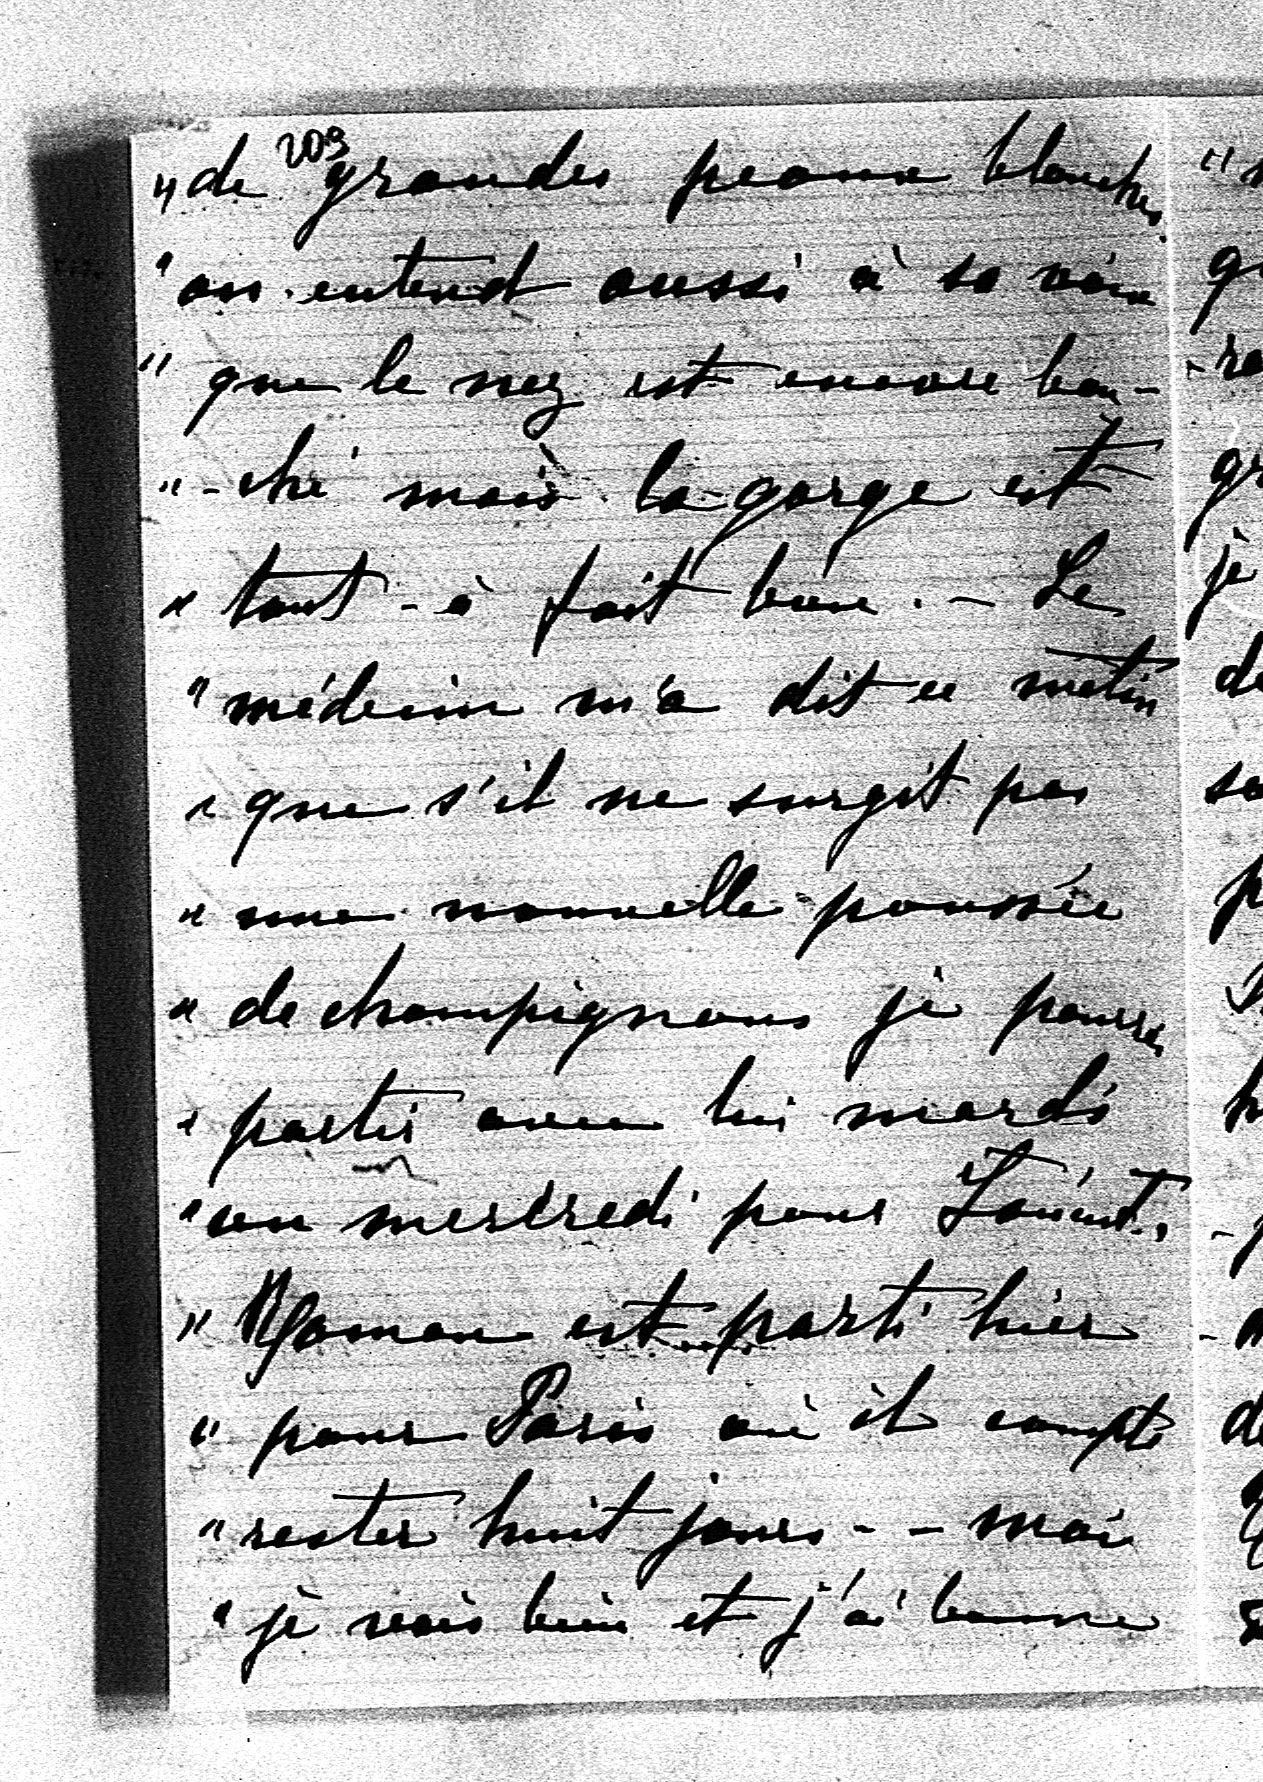 209
" de grandes peaux blanches,
" on entend aussi à sa voix
" que le nez est encore bou-
" -ché mais la gorge est
" tout - à fait bien. - Le
" médecin m'a dit ce matin
" que s'il ne surgit pas
" une nouvelle poussée
" de champignons je pourrai
" partir avec lui mardi
" ou mercredi pour
" Roman est parti hier
" pour Paris où il compte
" rester huit jours - - moi
" je vais bien et j'ai bonne